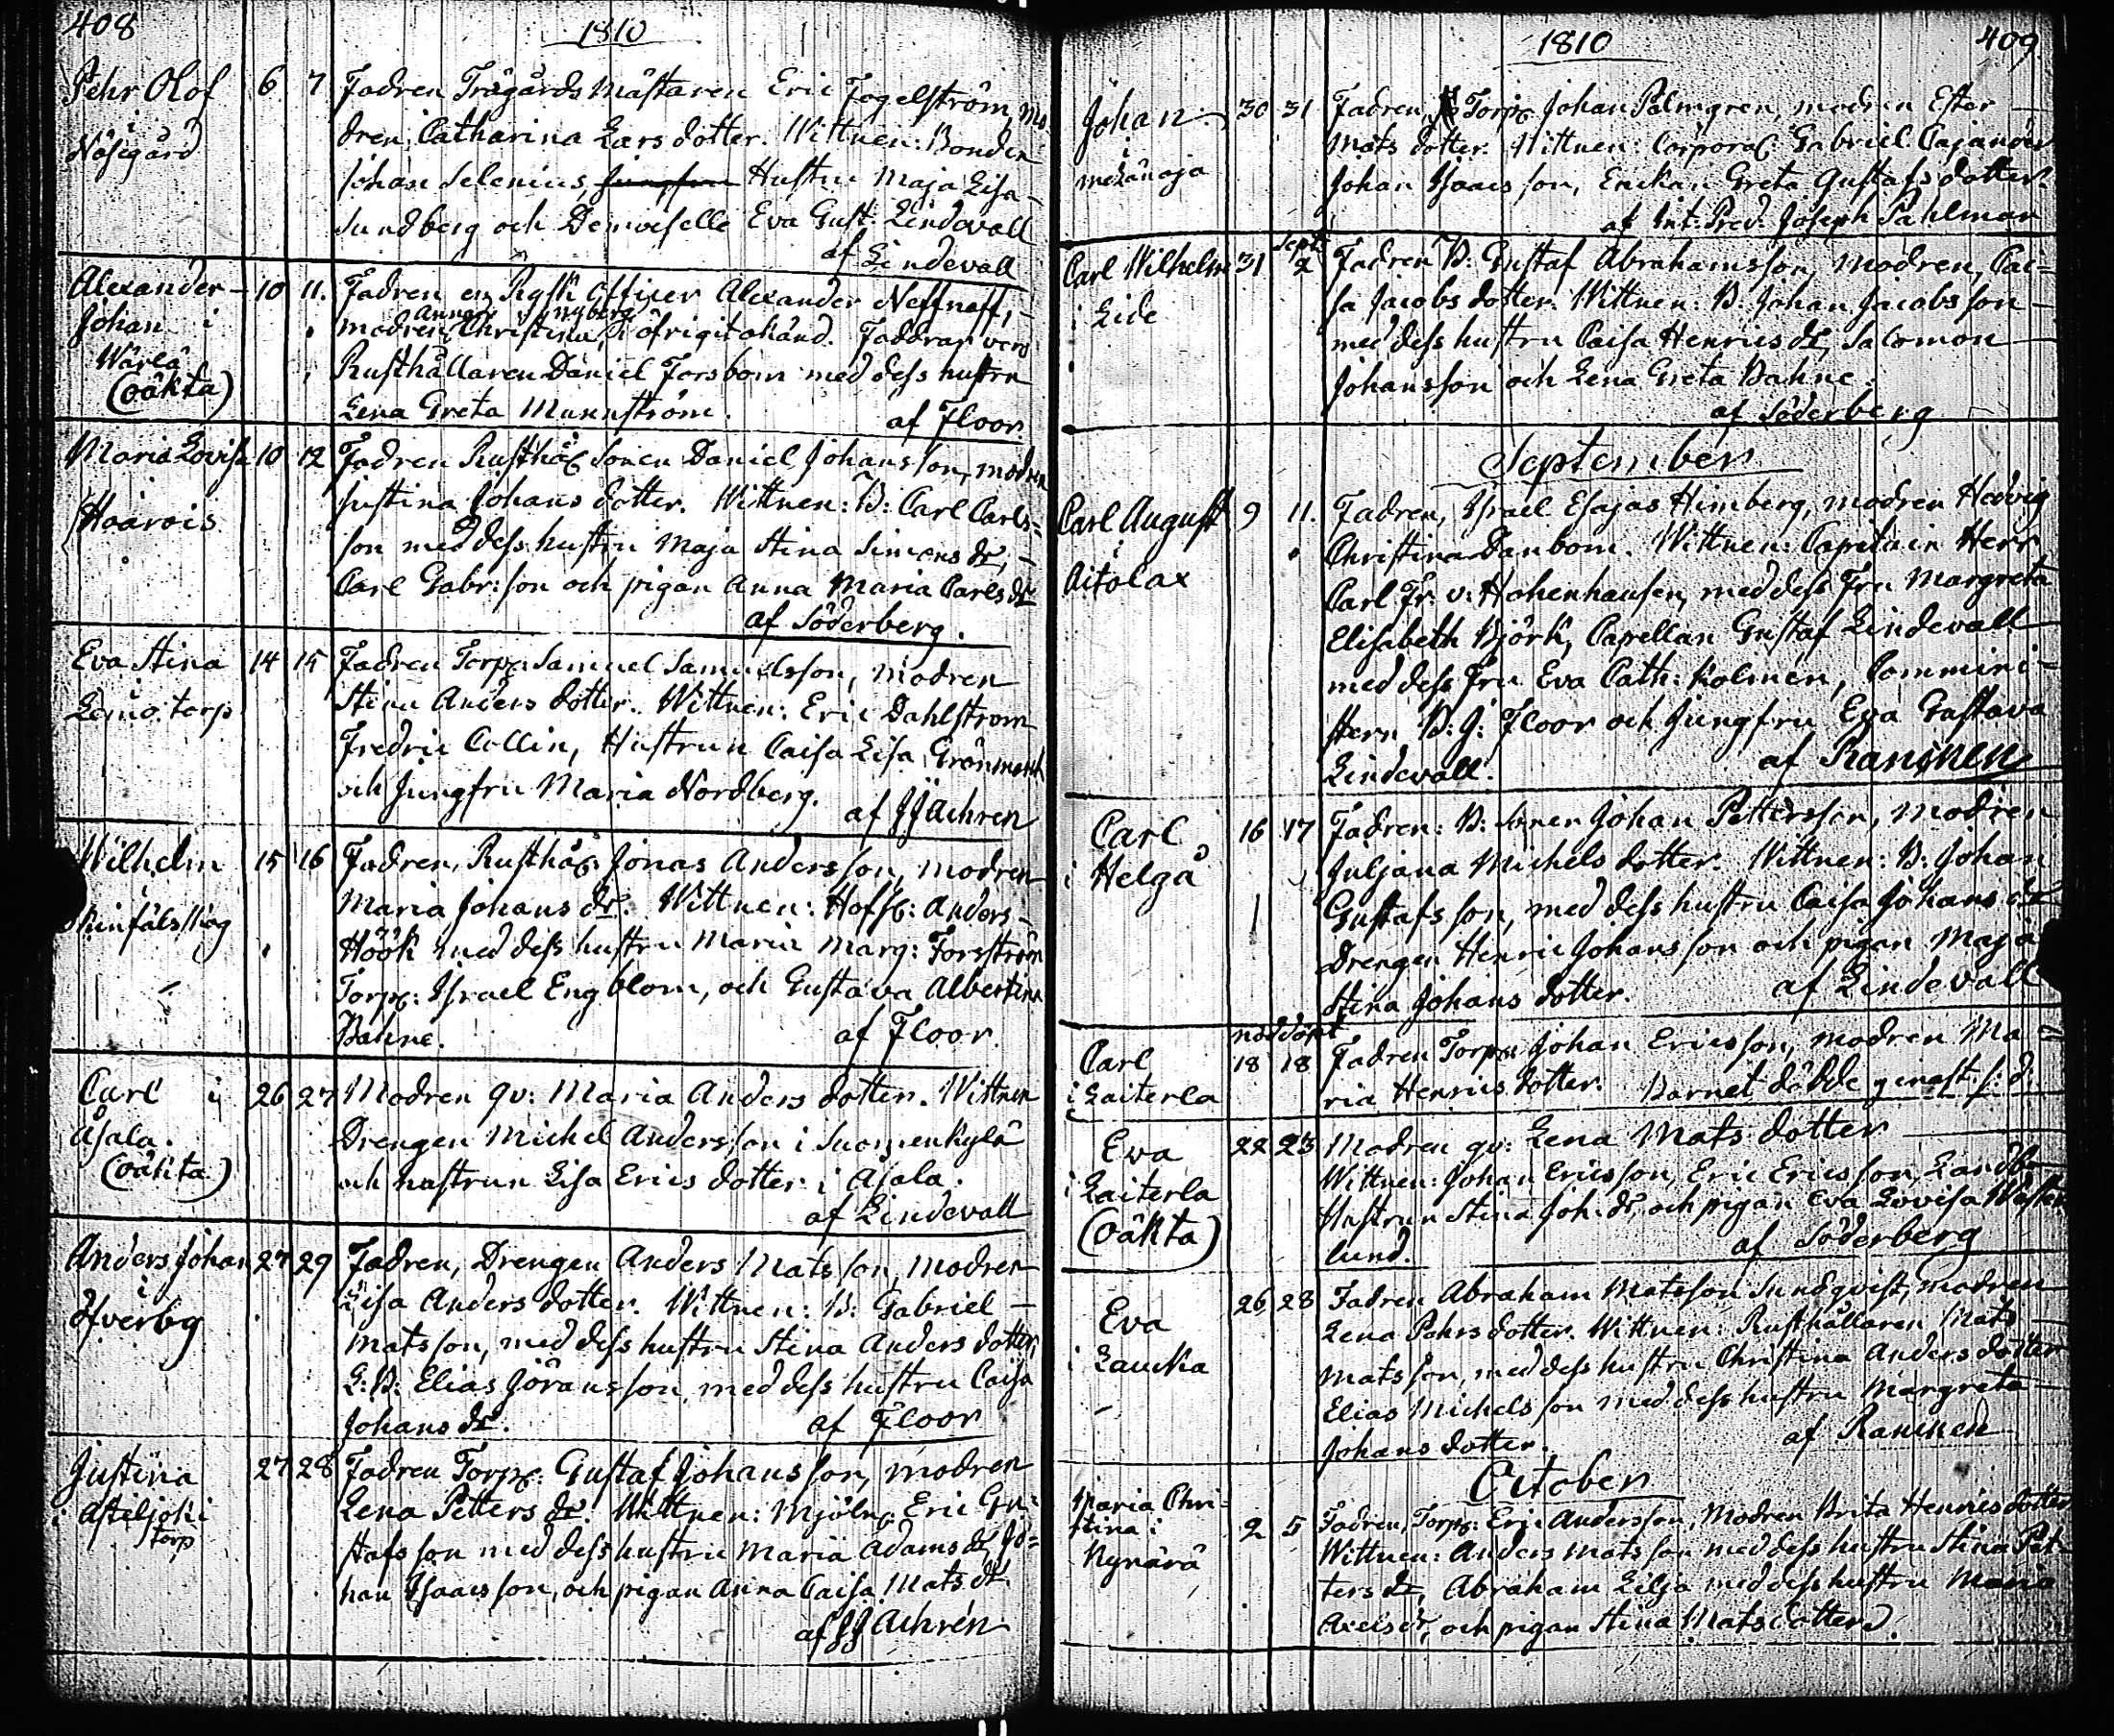 408
1810
Pehr Olof
i
Näsegård
6 7 Fadren Trägårds Mästaren Eric Fogelström, mo-
dren, Catharina Lars dotter. Wittnen: Bonden
Johan Selenius, Hustru Maja Lisa
Sundberg och Demoiselle Eva Gust: Lindevall
af Lindevall
Alexander
Johan i
Wärlä
(oäkta)
10 11. Fadren en Rysk Officer Alexander Neffneff,
Nyberg
modren Christina, i öfrigit okänd. Faddrar voro
Rusthållaren Daniel Forsbom med dess hustru
Lena Greta Munnström.
af Floor
Maria Lovisa
Hoarois
10 12 Fadren Rusthål Sonen Daniel Johansson, modren
Justina Johans dotter. Wittnen: B: Carl Carls-
son med dess hustru Maja Stina Simons dr,
Carl Gabr: son och pigan Anna Maria Carls dr
af Söderberg.
Eva Stina
i
Lemo torp
14 15 Fadren Torp: Samuel Samuelsson, modren
Stina Anders dotter. Wittnen: Eric Dahlström
Fredric Collin, Hustrun Caisa Lisa
och Jungfru Maria Nordberg.
af JJ Achren
Wilhelm
i
15 16 Fadren, Rusthål: Jonas Andersson, modren
Maria Johans dr. Wittnen: Anders
Höök med dess hustru Maria Marg: Forsström
Torp: Israel Engblom, och Gustava Albertina
Bahne.
af Floor.
Carl i
Asala.
(oäkta)
26 27 Modren qv: Maria Anders dotter. Wittnen
Drengen Michel Andersson i Suomenkylä
och hustrun Lisa Erics dotter i Asala.
af Lindevall
Anders Johan
i
Öfverby
27 29 Fadren, Drengen Anders Mats son, modren
Lisa Anders dotter. Wittnen: B: Gabriel
Matsson, med dess hustru Stina Anders dotter,
L: B: Elias Göransson med dess hustru Caisa
Johans dr.
af Floor
Justina
i Asteljoki
torp
27 28 Fadren Torp: Gustaf Johansson, modren
Lena Petters dr. Wittnen: Mjöln: Eric Gu-
stafs son med dess hustru Maria Adams dr, Jo-
han Isaacsson, och pigan Anna Caisa Mats dr.
af JJ Achrén
1810
409
Johan
i
30 31 Fadren, Torp: Johan Palmgren, modren Ester
Mats dotter. Wittnen: Corporal: Gabriel Cajander
Johan Isaacs son, Enckan Greta Gustafs dotter.
af Int: Pred: Joseph Pahlman
Carl Wilhelm
i Lide
31 Sept: 2 Fadren B: Gustaf Abrahamsson, modren, Cai-
sa Jacobs dotter. Wittnen: B: Johan Jacobsson
med dess hustru Caisa Henrics dr, Salomon
Johansson och Lena Greta Bahne.
af Söderberg
September
Carl August
i
Aitolax
9 11. Fadren, Israel Esajas Himberg, modren Hedvig
Christina Danbom. Wittnen: Capitain Herr
Carl Fr: v: Hohenhausen, med dess Fru Margreta
Elisabeth Björk, Capellan Gustaf Lindevall
med dess Fru Eva Cath: Kolmen, Commini-
stern B: J: Floor och Jungfru Eva Gustava
Lindevall.
af Rancken
Carl
i Helgå
16 17 Fadren: B: Sonen Johan Pettersson, modren
Juljana Michels dotter. Wittnen: B: Johan
Gustafs son, med dess hustru Caisa Johans dr
Drengen Henric Johansson och pigan Maja
Stina Johans dotter.
af Lindevall
Carl
i Laiterla
nöddöpt
18 18 Fadren Torp: Johan Ericsson, modren Ma-
ria Henrics dotter. Barnet dödde genast s: d:
Eva
i Laiterla
(oäkta)
22 23 Modren qv: Lena Mats dotter
Wittnen: Johan Ericsson, Eric Ericsson, Landb:
Hustrun Stina Joh: dr, och pigan Eva Lovisa Wester-
lund.
af Söderberg
Eva
i Laucka
26 28 Fadren Abraham Matsson Sundqvist, modren
Lena Pehrs dotter. Wittnen: Rusthållaren Mats
Matsson, med dess hustru Christina Anders dotter
Elias Michels son med dess hustru Margreta
Johans dotter.
af Rancken
October
Maria Chri-
stina i
Kynärä
2 5 Fadren, Torp: Eric Andersson, Modren Brita Henrics dotter
Wittnen: Anders Mats son med dess hustru Stina Pet-
ters dr, Abraham Lilja med dess hustru Maria
Axels dr, och pigan Stina Mats dotter.